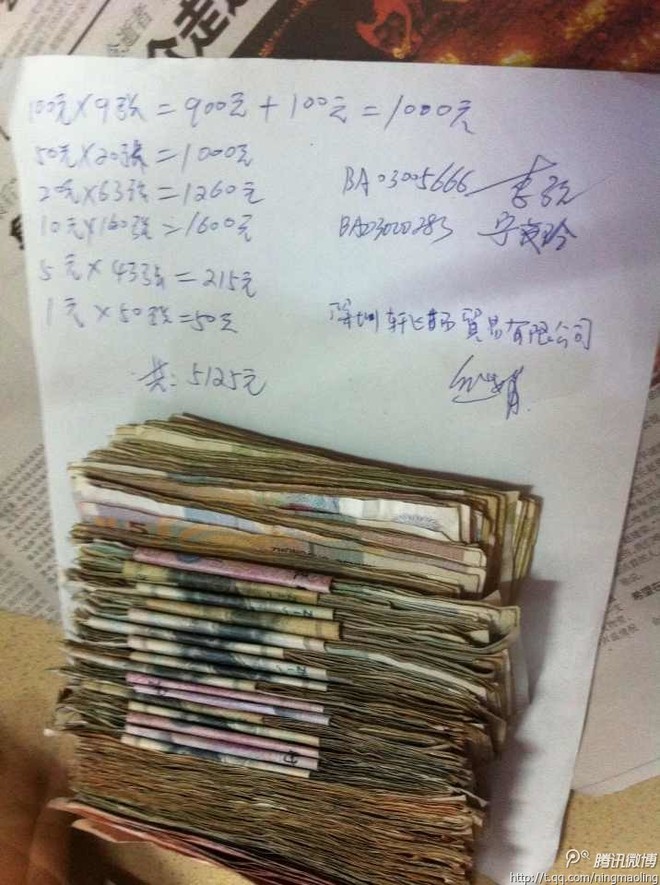 100元×9张=900元+100元=1000元
50元×20张=1000元
20元×63张=1260元
10元×160张=1600元
5元×43张=215元
1元×50张=50元
共:5125元
BA03005666
BA03020283
深圳轩飞扬貿易有限公司
腾讯微博
http://t.qq.com/ningmaoling